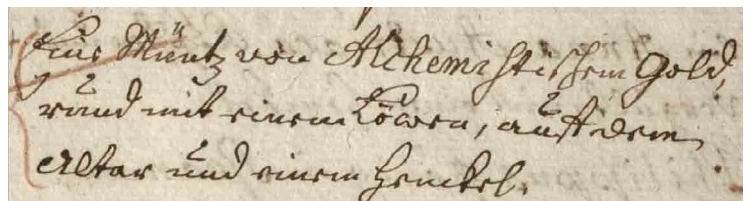 Eine Müntz von Alchemistischem Gold,
rund mit einem Löwen, auf dem
Altar und einem Henckel.